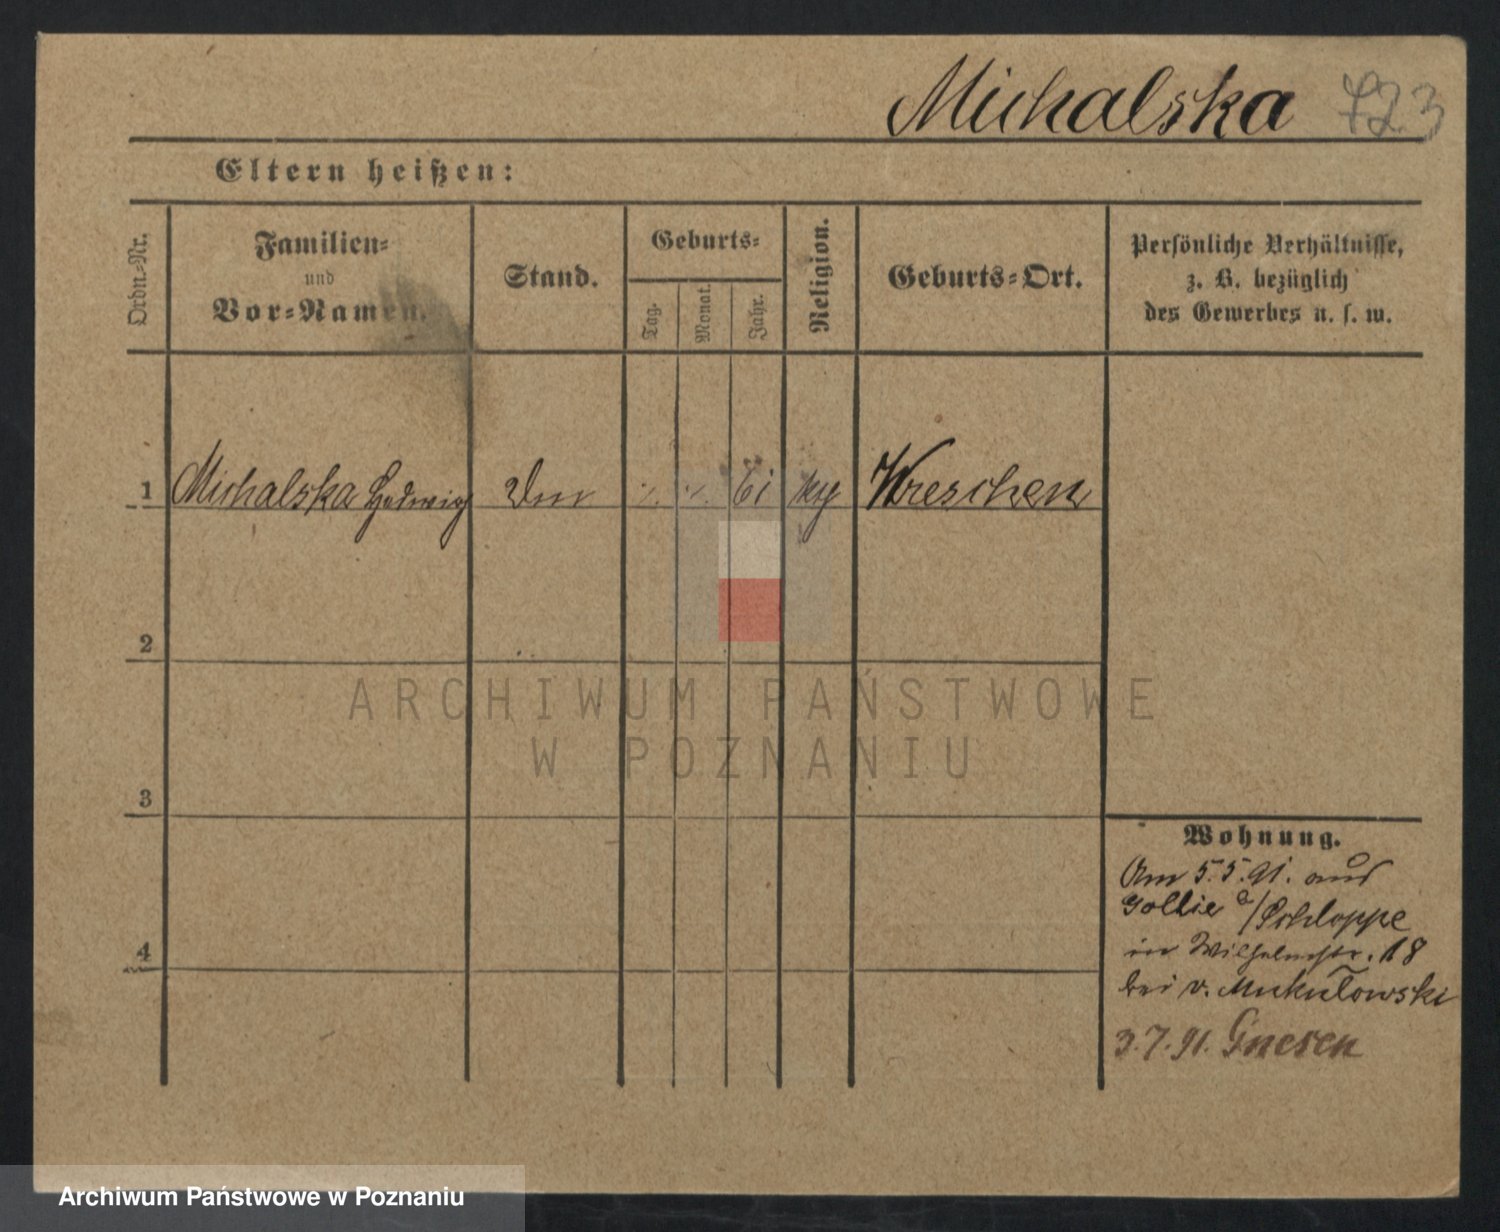 Michalska 723
Eltern heißen:
Ordn-Nr.
Familien-
und
Vor-Namen.
Stand.
Geburts-
Tag.
Monat.
Jahr.
Religion.
Geburts-Ort.
Persönliche Verhältnisse,
z. B. bezüglich
des Gewerbes u. s. w.
1 Michalska Hedwig 61 Wreschen
2
3
4
Wohnung.
Am 5.5.91. aus
Gollie a/Schloppe
in Wilhelmstr. 18
bei v. Mukulowski
3.7.91. Gnesen
ARCHIWUM PAŃSTWOWE
W POZNANIU
Archiwum Państwowe w Poznaniu